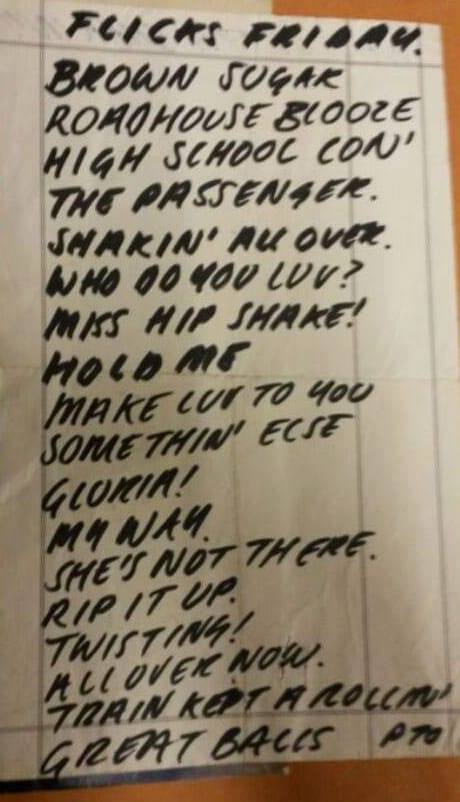 FLICKS FRIDAY.
BROWN SUGAR
ROADHOUSE BLOOZE
HIGH SCHOOL CON'
THE PASSENGER.
SHAKIN' ALL OVER.
WHO DO YOU LUV?
MISS HIP SHAKE!
HOLD ME
MAKE LUV TO YOU
SOMETHIN' ELSE
GLORIA!
MY WAY.
SHE'S NOT THERE.
RIP IT UP.
TWISTING!
ALL OVER NOW.
TRAIN KEPT A ROLLIN'
GREAT BALLS PTO